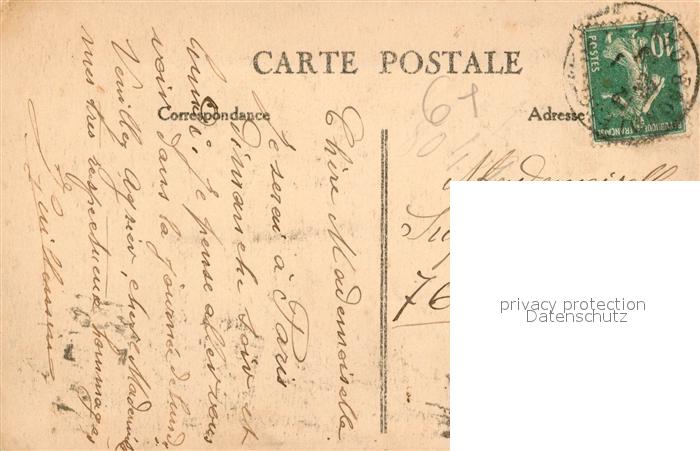 CARTE POSTALE
Correspondance
Adresse
10
POSTES
REPUBLIQUE FRANCAISE
6+
Mademoiselle
76
Chère Mademoiselle
Je serai à Paris
dimanche soir et
lundi. Je pense aller vous
voir dans la journée de lundi
Veuillez agréer, chère Mademoiselle
mes très respectueux hommages
privacy protection
Datenschutz